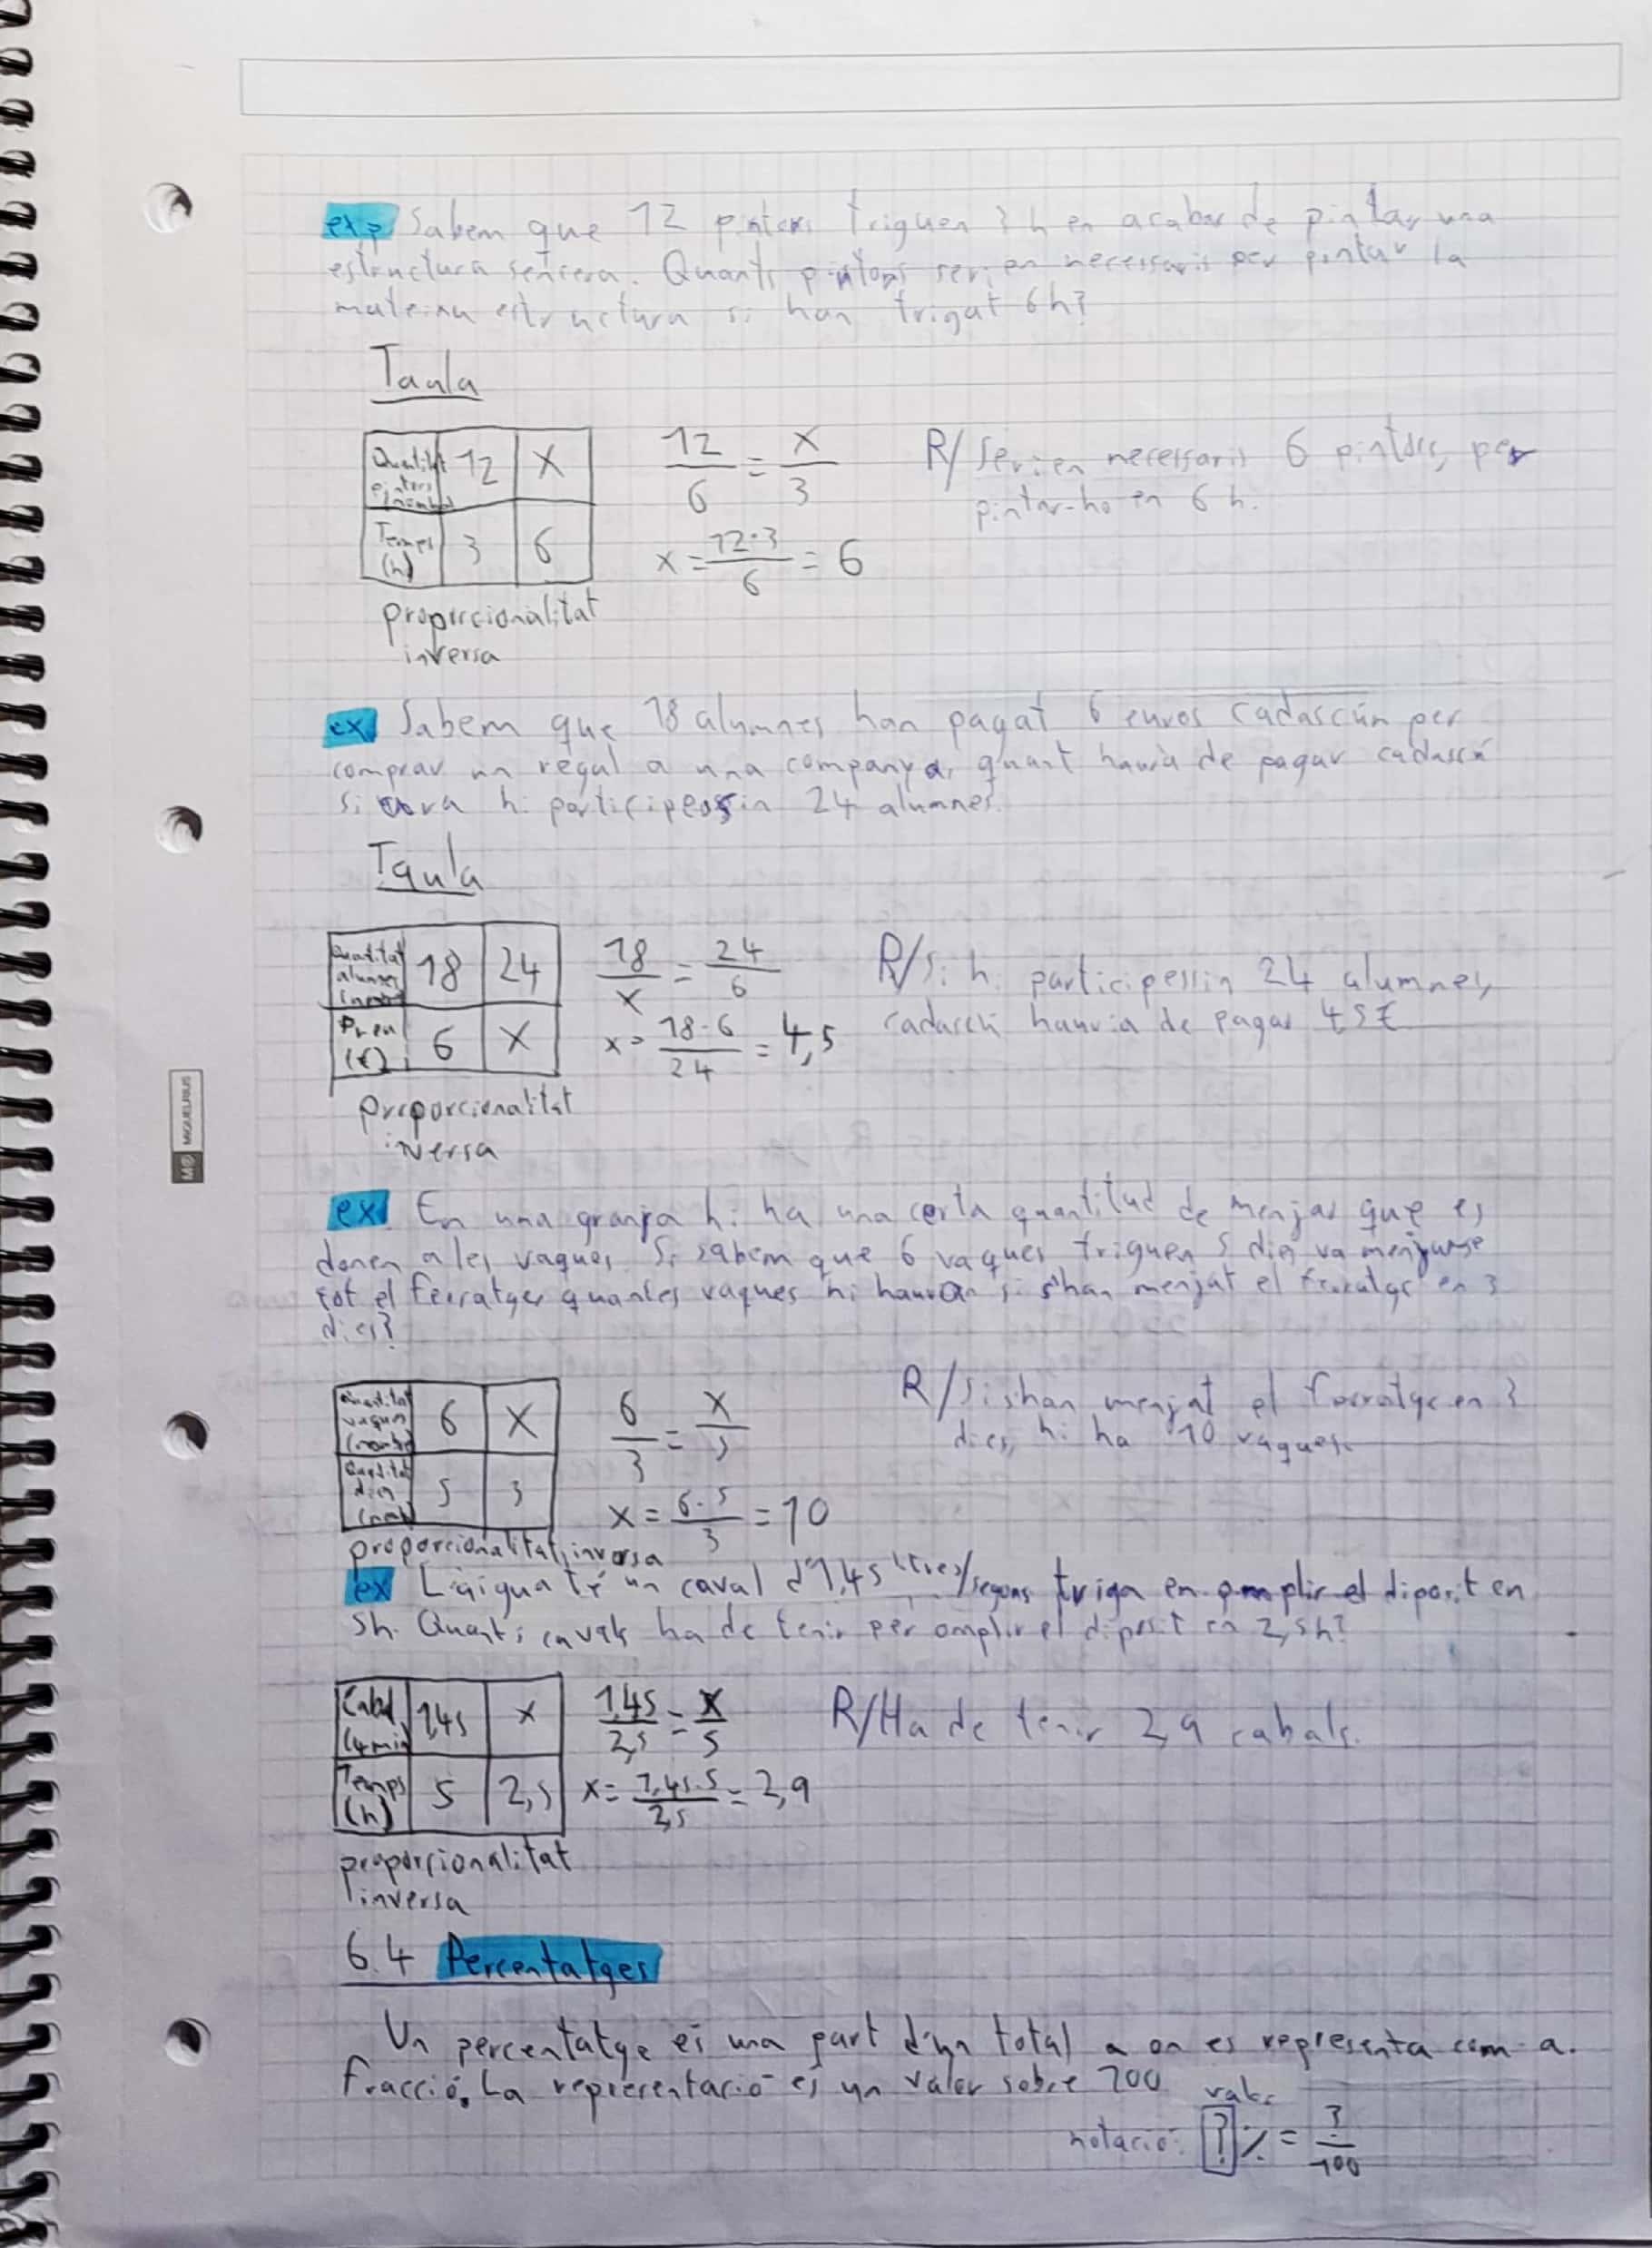 ex. Sabem que 12 pintors triguen 3 h en acabar de pintar una
estructura sencera. Quants pintors serien necessaris per pintar la
mateixa estructura si han trigat 6h?
Taula
Quantitat pintors (nombre) 12 X
Temps (h) 3 6
12/6 = x/3
x = 12·3/6 = 6
R/ Serien necessaris 6 pintors, per
pintar-ho en 6 h.
proporcionalitat
inversa
ex Sabem que 18 alumnes han pagat 6 euros cadascún per
comprar un regal a una companya, quant hauria de pagar cadascú
si ara hi participessin 24 alumnes.
Taula
Quantitat alumnes (nombre) 18 24
Preu (€) 6 X
18/x = 24/6
x = 18·6/24 = 4,5
R/ Si hi participessin 24 alumnes,
cadascú hauria de pagar 4,5€
proporcionalitat
inversa
ex. En una granja hi ha una certa quantitud de menjar que es
donen a les vaques. Si sabem que 6 vaques triguen 5 dies
tot el quantes vaques hi si s'han menjat el en 3
dies?
Quantitat vaques (nombre) 6 X
Quantitat dies (nombre) 5 3
6/3 = x/5
x = 6·5/3 = 10
R/ Si shan menjat el forratge en 3
dies, hi ha 10 vaques.
proporcionalitat inversa
ex L'aigua té un caval d'1,45 litres/segons triga en omplir el diposit en
5h. Quants cavals ha de tenir per omplir el diposit en 2,5h?
Cabal 1,45 x
Temps (h) 5 2,5
1,45/2,5 = x/5
x = 1,45·5/2,5 = 2,9
R/ Ha de tenir 2,9 cabals.
proporcionalitat
inversa
6.4 Percentatges
Un percentatge és una part d'un total a on es representa com a
fracció. La representació és un valor sobre 100
valor
notació: ? % = ?/100
MR MIQUELRIUS